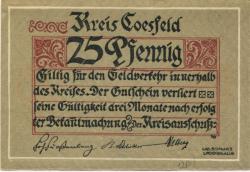 Kreis Coesfeld
25 Pfennig
Giltig für den Geldverkehr innerhalb
des Kreises. Der Gutschein verliert
seine Gültigkeit drei Monate nach erfolg
ter Bekanntmachung. Der Kreisausschuß: